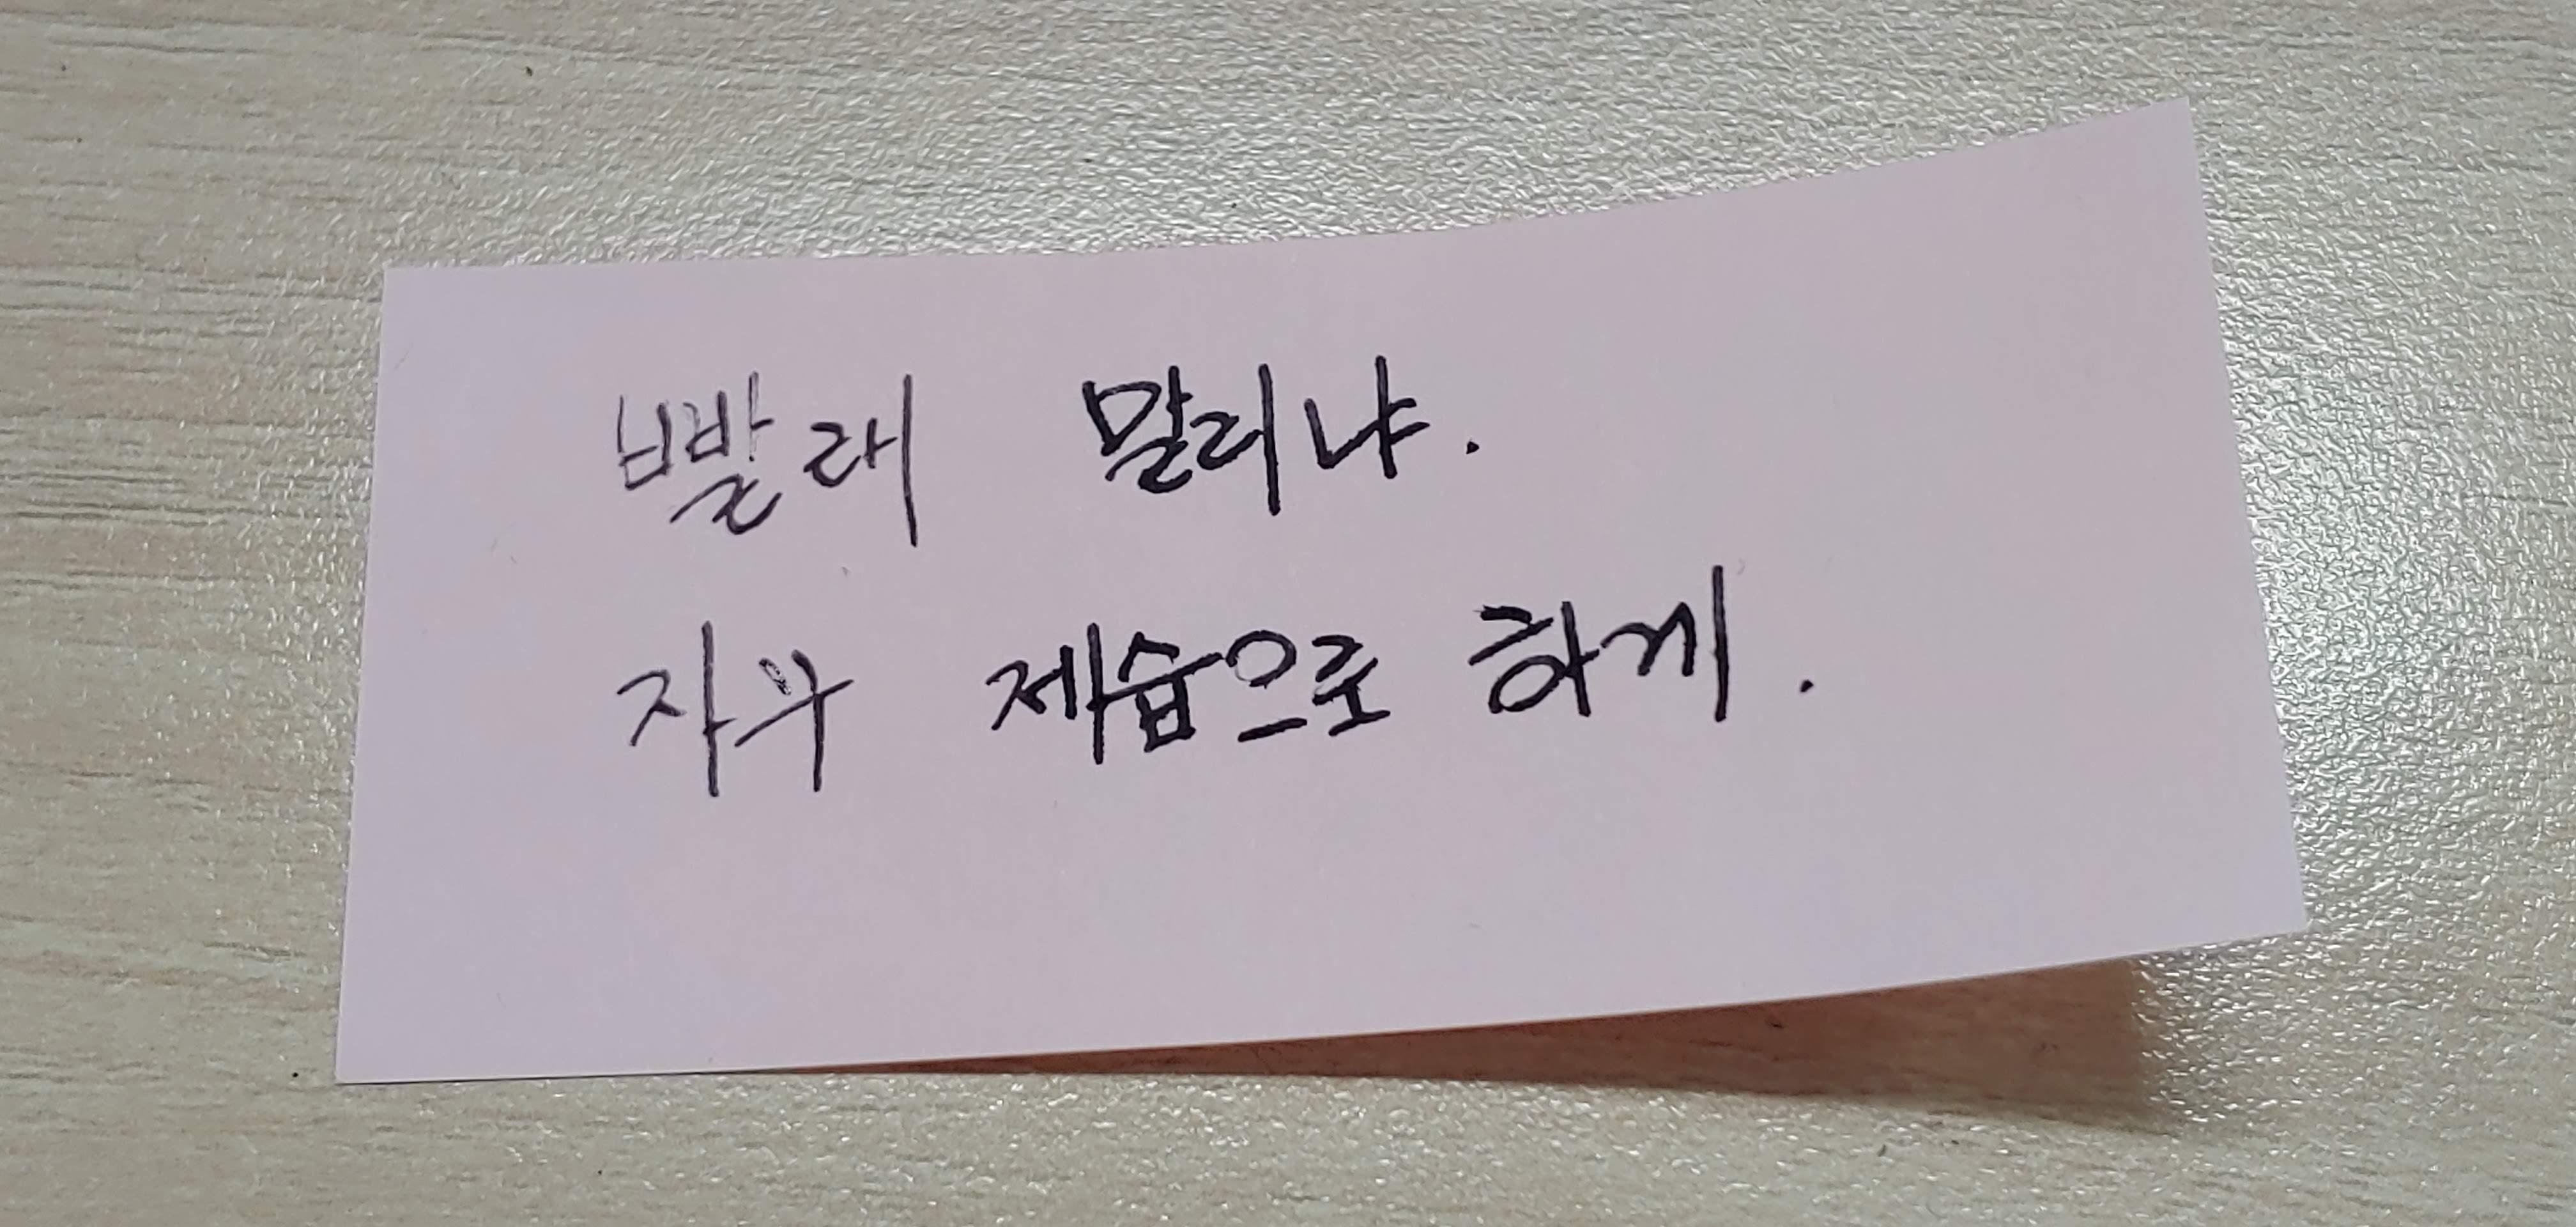 빨래 말리냐.
자꾸 제습으로 하게.